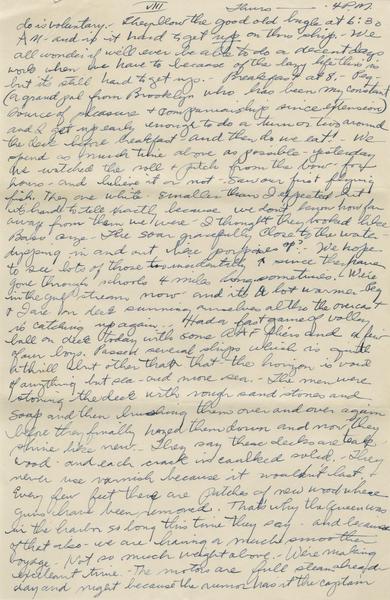 VIII Thurs 4 P.M.
do is voluntary. They blow the good old bugle at 6:30
A.M. and is it hard to get up on this ship. We
all wonder if we'll ever be able to do a decent days
work when we have to because of the lazy life this is
but it's still hard to get up. Breakfast at 8. Peg
(a grand gal from Brooklyn who has been my constant
source of pleasure & companionship since extension)
and I get up early enough to do a turn or two around
the deck before breakfast and then do we eat! We
spend as much time above as possible - yesterday
we watched the roll & pitch from the bow for
hours - and believe it or not - saw our first flying
fish. They are white - smaller than I expected but
it's hard to tell exactly because we don't know how far
away from them we were. I thought they looked like
Bass size. They soar gracefully close to the water
dipping in and out like porpoises. We hope
to see lots of those too & since they have
gone through schools 4 miles long sometimes. We're
in the gulf stream now and it's a lot warmer. Peg
& I are on deck sunning ourselves altho the overcast
is catching up again. Had a fast game of volley
ball on deck today with some RAF fliers and a few
of our boys. Passed several ships which is quite
a thrill but other than that the horizon is void
of anything but sea - and more sea. The men were
stoning the deck with rough sand stones and
soap and then brushing them over and over again
before they finally hosed them down and now they
shine like new. They say these decks are teak
wood - and each crack is caulked solid. They
never use varnish because it wouldn't last.
Every few feet there are patches of new wood where
guns have been removed. That's why the Queen was
in the harbor so long this time they say - and because
of that also - we are having a much smoother
voyage. Not so much weight above. We're making
excellent time. The motors are full steam ahead
day and night because the rumor has it the captain